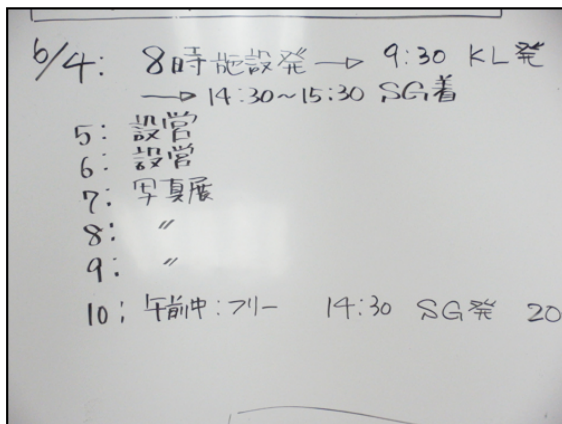 6/4: 8時施設発 → 9:30 KL発
→ 14:30~15:30 SG着
5: 設営
6: 設営
7: 写真展
8: 〃
9: 〃
10: 午前中:フリー 14:30 SG発 20